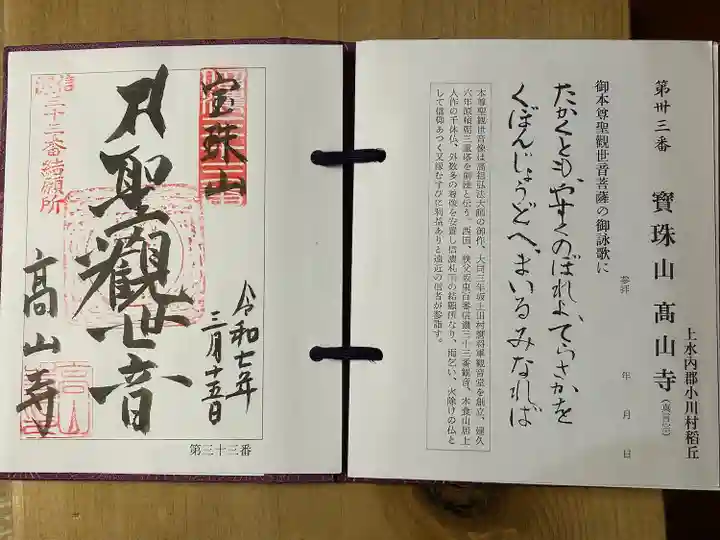 第卅三番 寶珠山 高山寺(真言宗)
上水内郡小川村稲丘
参拝 年 月 日
御本尊聖觀世音菩薩の御詠歌に
たかくとも、やすくのぼれよ、てらさかを
くぼんじょうどへ、まいるみなれば
本尊聖観世音像は高祖弘法大師の御作、大同三年坂上田村麿将軍観音堂を創立、建久
六年源頼朝三重塔を御建と伝う。西国、秩父坂東百番信濃三十三番観音、木食山居上
人作の千体仏、外数多の尊像を安置し信濃札所の結願所なり、雨乞い、火除けの仏と
して信仰あつく又縁むすびに利益ありと遠近の信者が参詣す。
宝珠山
令和七年
三月十五日
聖觀世音
三十三番結願所
高山寺
第三十三番